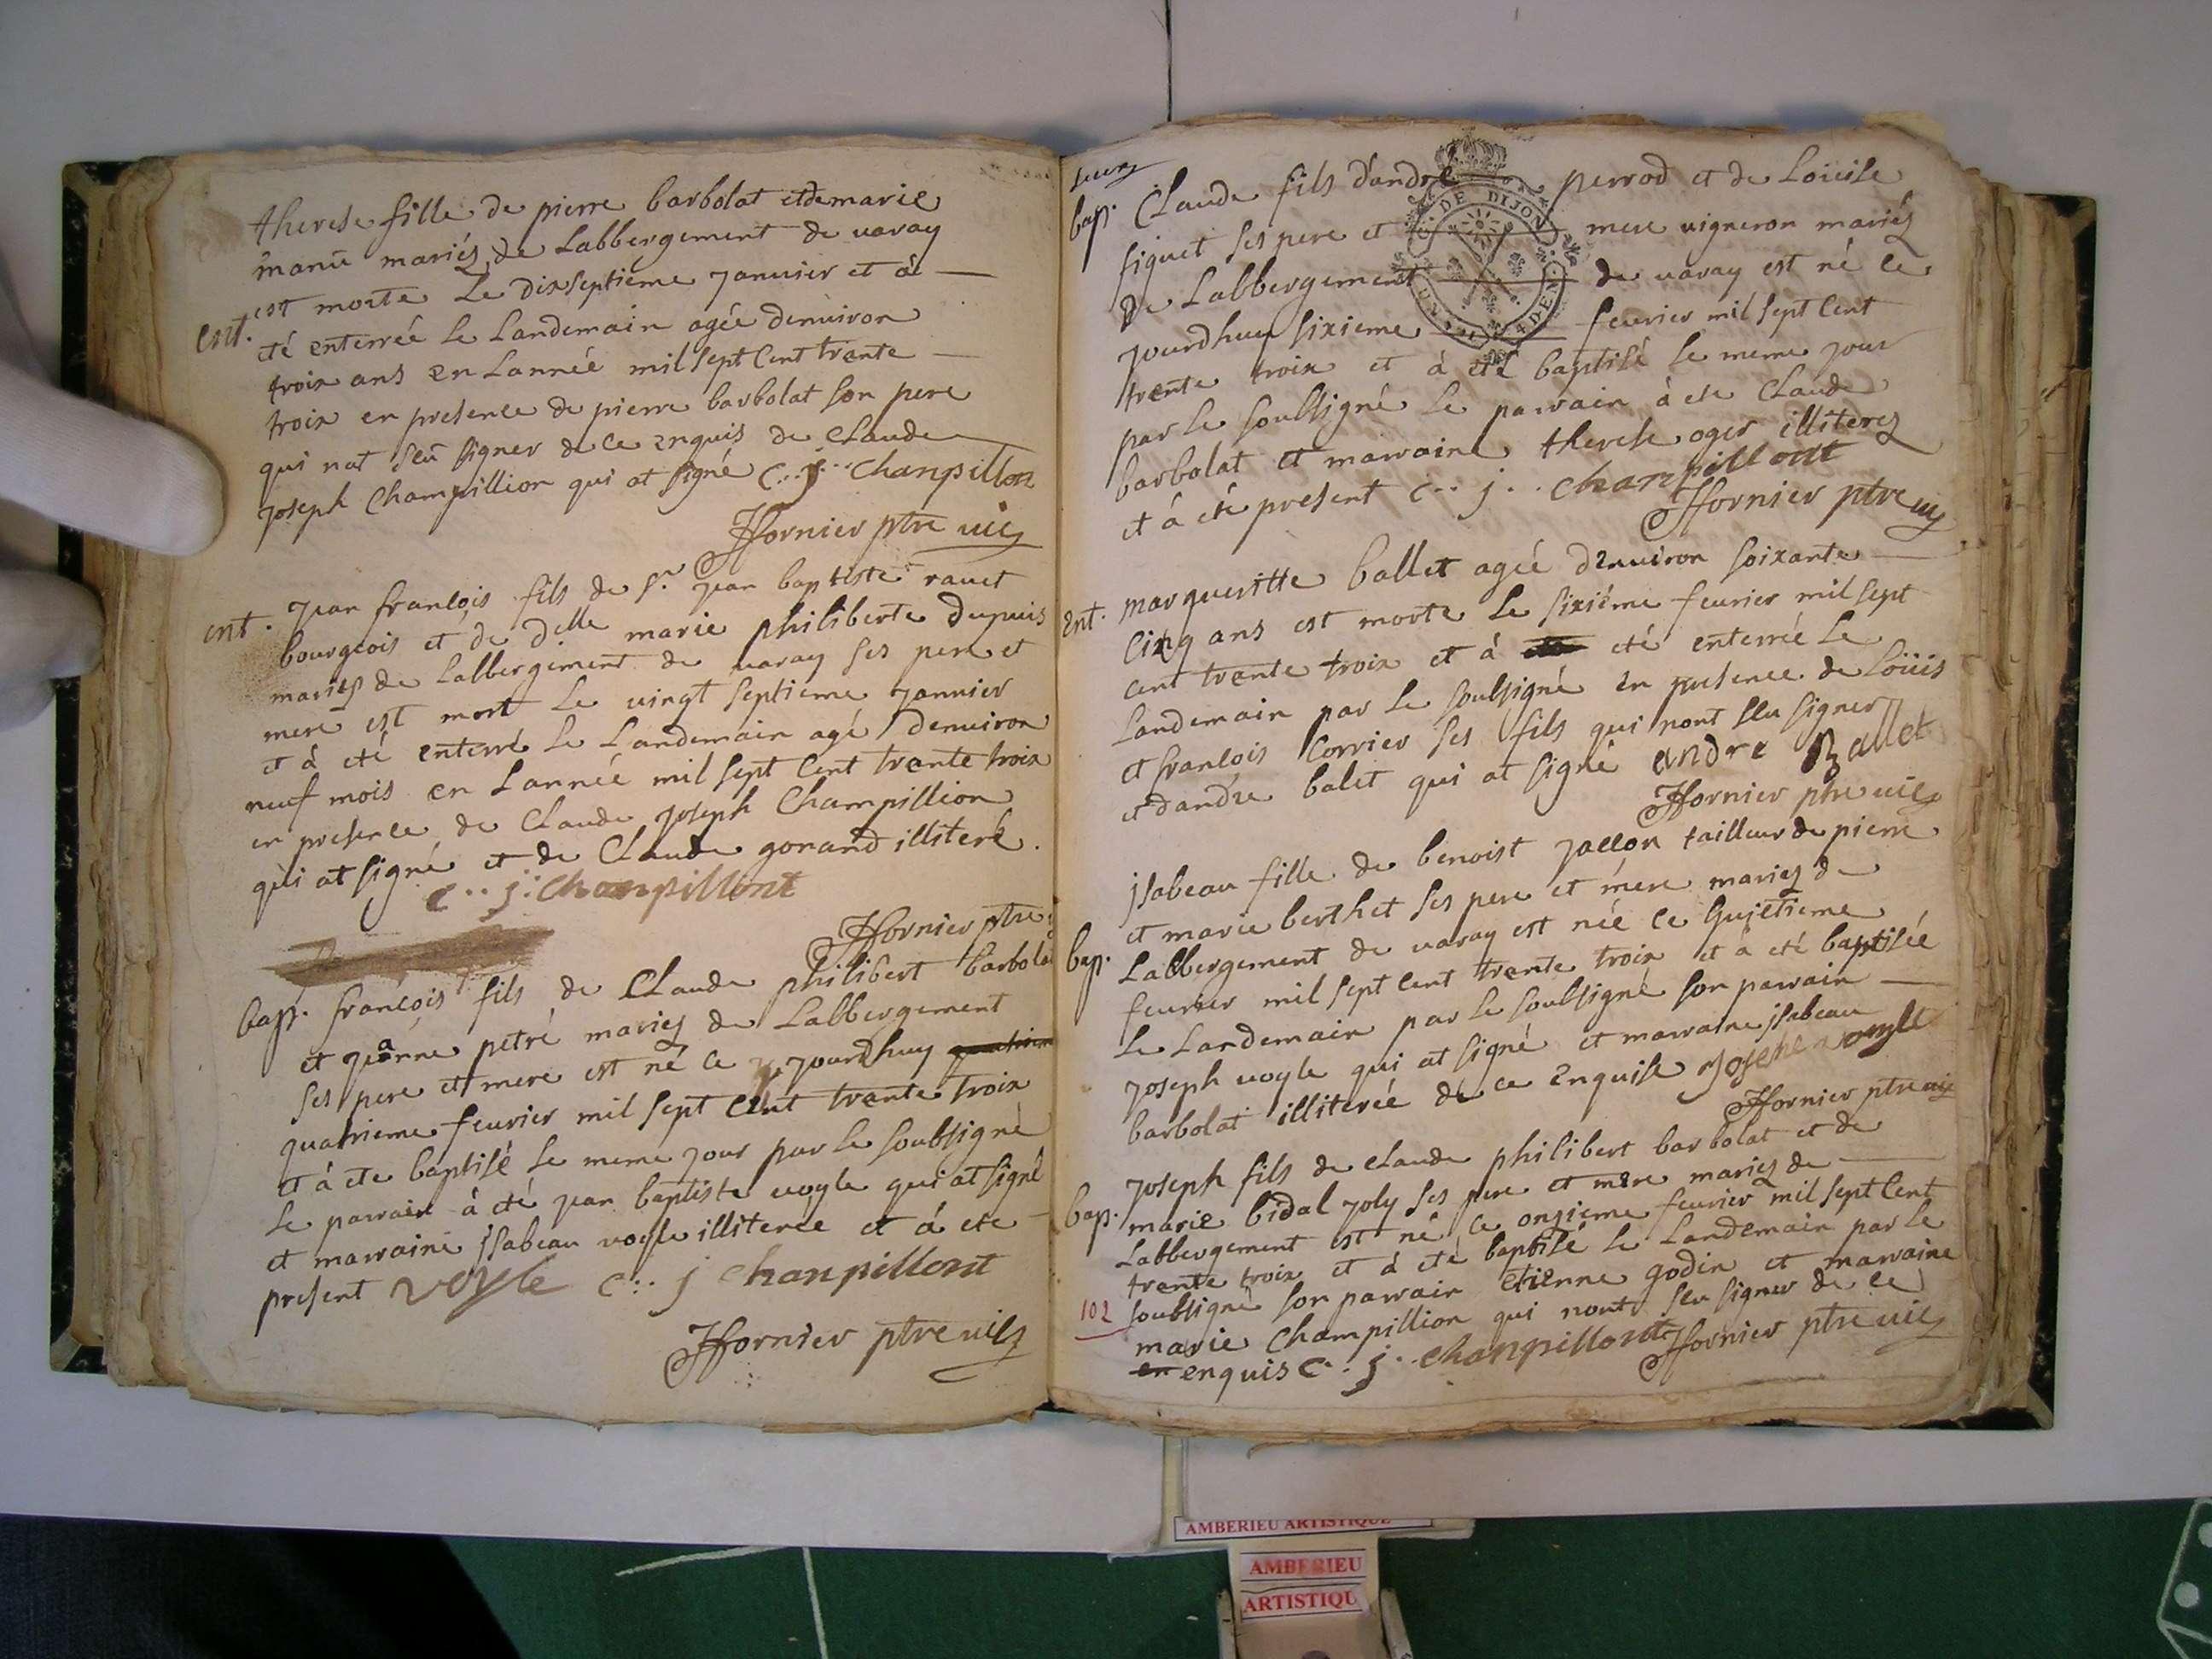 therese fille de pierre barbolat et de marie
manū mariés de Labbergement de varay
est morte Le dixseptieme janvier et à
ent.
eté enterrée le Landemain agée denuiron
troix ans en Lannée mil sept Cent trente
troix en presence de pierre barbolat son pere
qui nat sçu signer de ce enquis de Claude
joseph Champillion qui at signé c..j.. chanpillon
Hornier ptre vic
ent. jean françois fils de Sr jean baptiste ravet
bourgeois et de delle marie philiberte dupuis
mariés de Labbergement de varay ses pere et
mere est mort Le vingt septieme janvier
et à eté enterré le Landemain agé denuiron
neuf mois en Lannée mil sept Cent trente troix
en presence de Claude joseph Champillion
qui at signé et de Claude gonand illiteré.
c..j. chanpillont
Hornier ptre
bap. françois fils de Claude philibert barbola
et jeanne petré mariez de Labbergement
ses pere et mere est né ce jourdhuy
quatrieme feurier mil sept Cent trente troix
et à ete baptisé le meme jour par le soubsigné
le parrain à eté jean baptiste uogle qui at signé
et marraine jsabeau uogle illiterée et à ete
present vogle c..j chanpillont
Hornier ptre vic
bap. Claude fils dandré perrod et de Loüise
figuet ses pere et mere vigneron mariés
de Labbergement de varay est né ce
jourdhuy sixieme feurier mil sept Cent
trente troix et à eté baptisé le meme jour
par le soubsigné le parrain à ete Claude
barbolat et marraine therese oger illiterez
et à eté present c..j.. chanpillont
Hornier ptre vic
ent. margueritte ballet agée denuiron soixante
Cinq ans est morte Le sixiéme feurier mil sept
cent trente troix et à eté enterrée Le
Landemain par le soubsigné en presence de Loüis
et françois Corrier ses fils qui nont sçu signer
et dandré balet qui at signé andre Ballet
Hornier ptre vic
jsabeau fille de benoist jallon tailleur de pierre
et marie berthet ses pere et mere mariez de
bap. Labbergement de varay est née ce huitieme
feurier mil sept Cent trente troix et à eté baptisée
le Landemain par le soubsigné son parrain
joseph uogle qui at signé et marraine jsabeau
barbolat illiterée de ce enquise joseph vogle
Hornier ptre vic
joseph fils de claude philibert barbolat et de
bap. marie bidal joly ses pere et mere mariez de
Labbergement est né ce onzieme feurier mil sept Cent
trente troix et à eté baptisé le Landemain par le
102 soubsigné son parrain etienne godin et marraine
marie Champillion qui nont sçu signer de ce
enquis c..j.. chanpillont Hornier ptre vic
DE DIJON
AMBERIEU ARTISTIQUE
AMBERIEU
ARTISTIQU